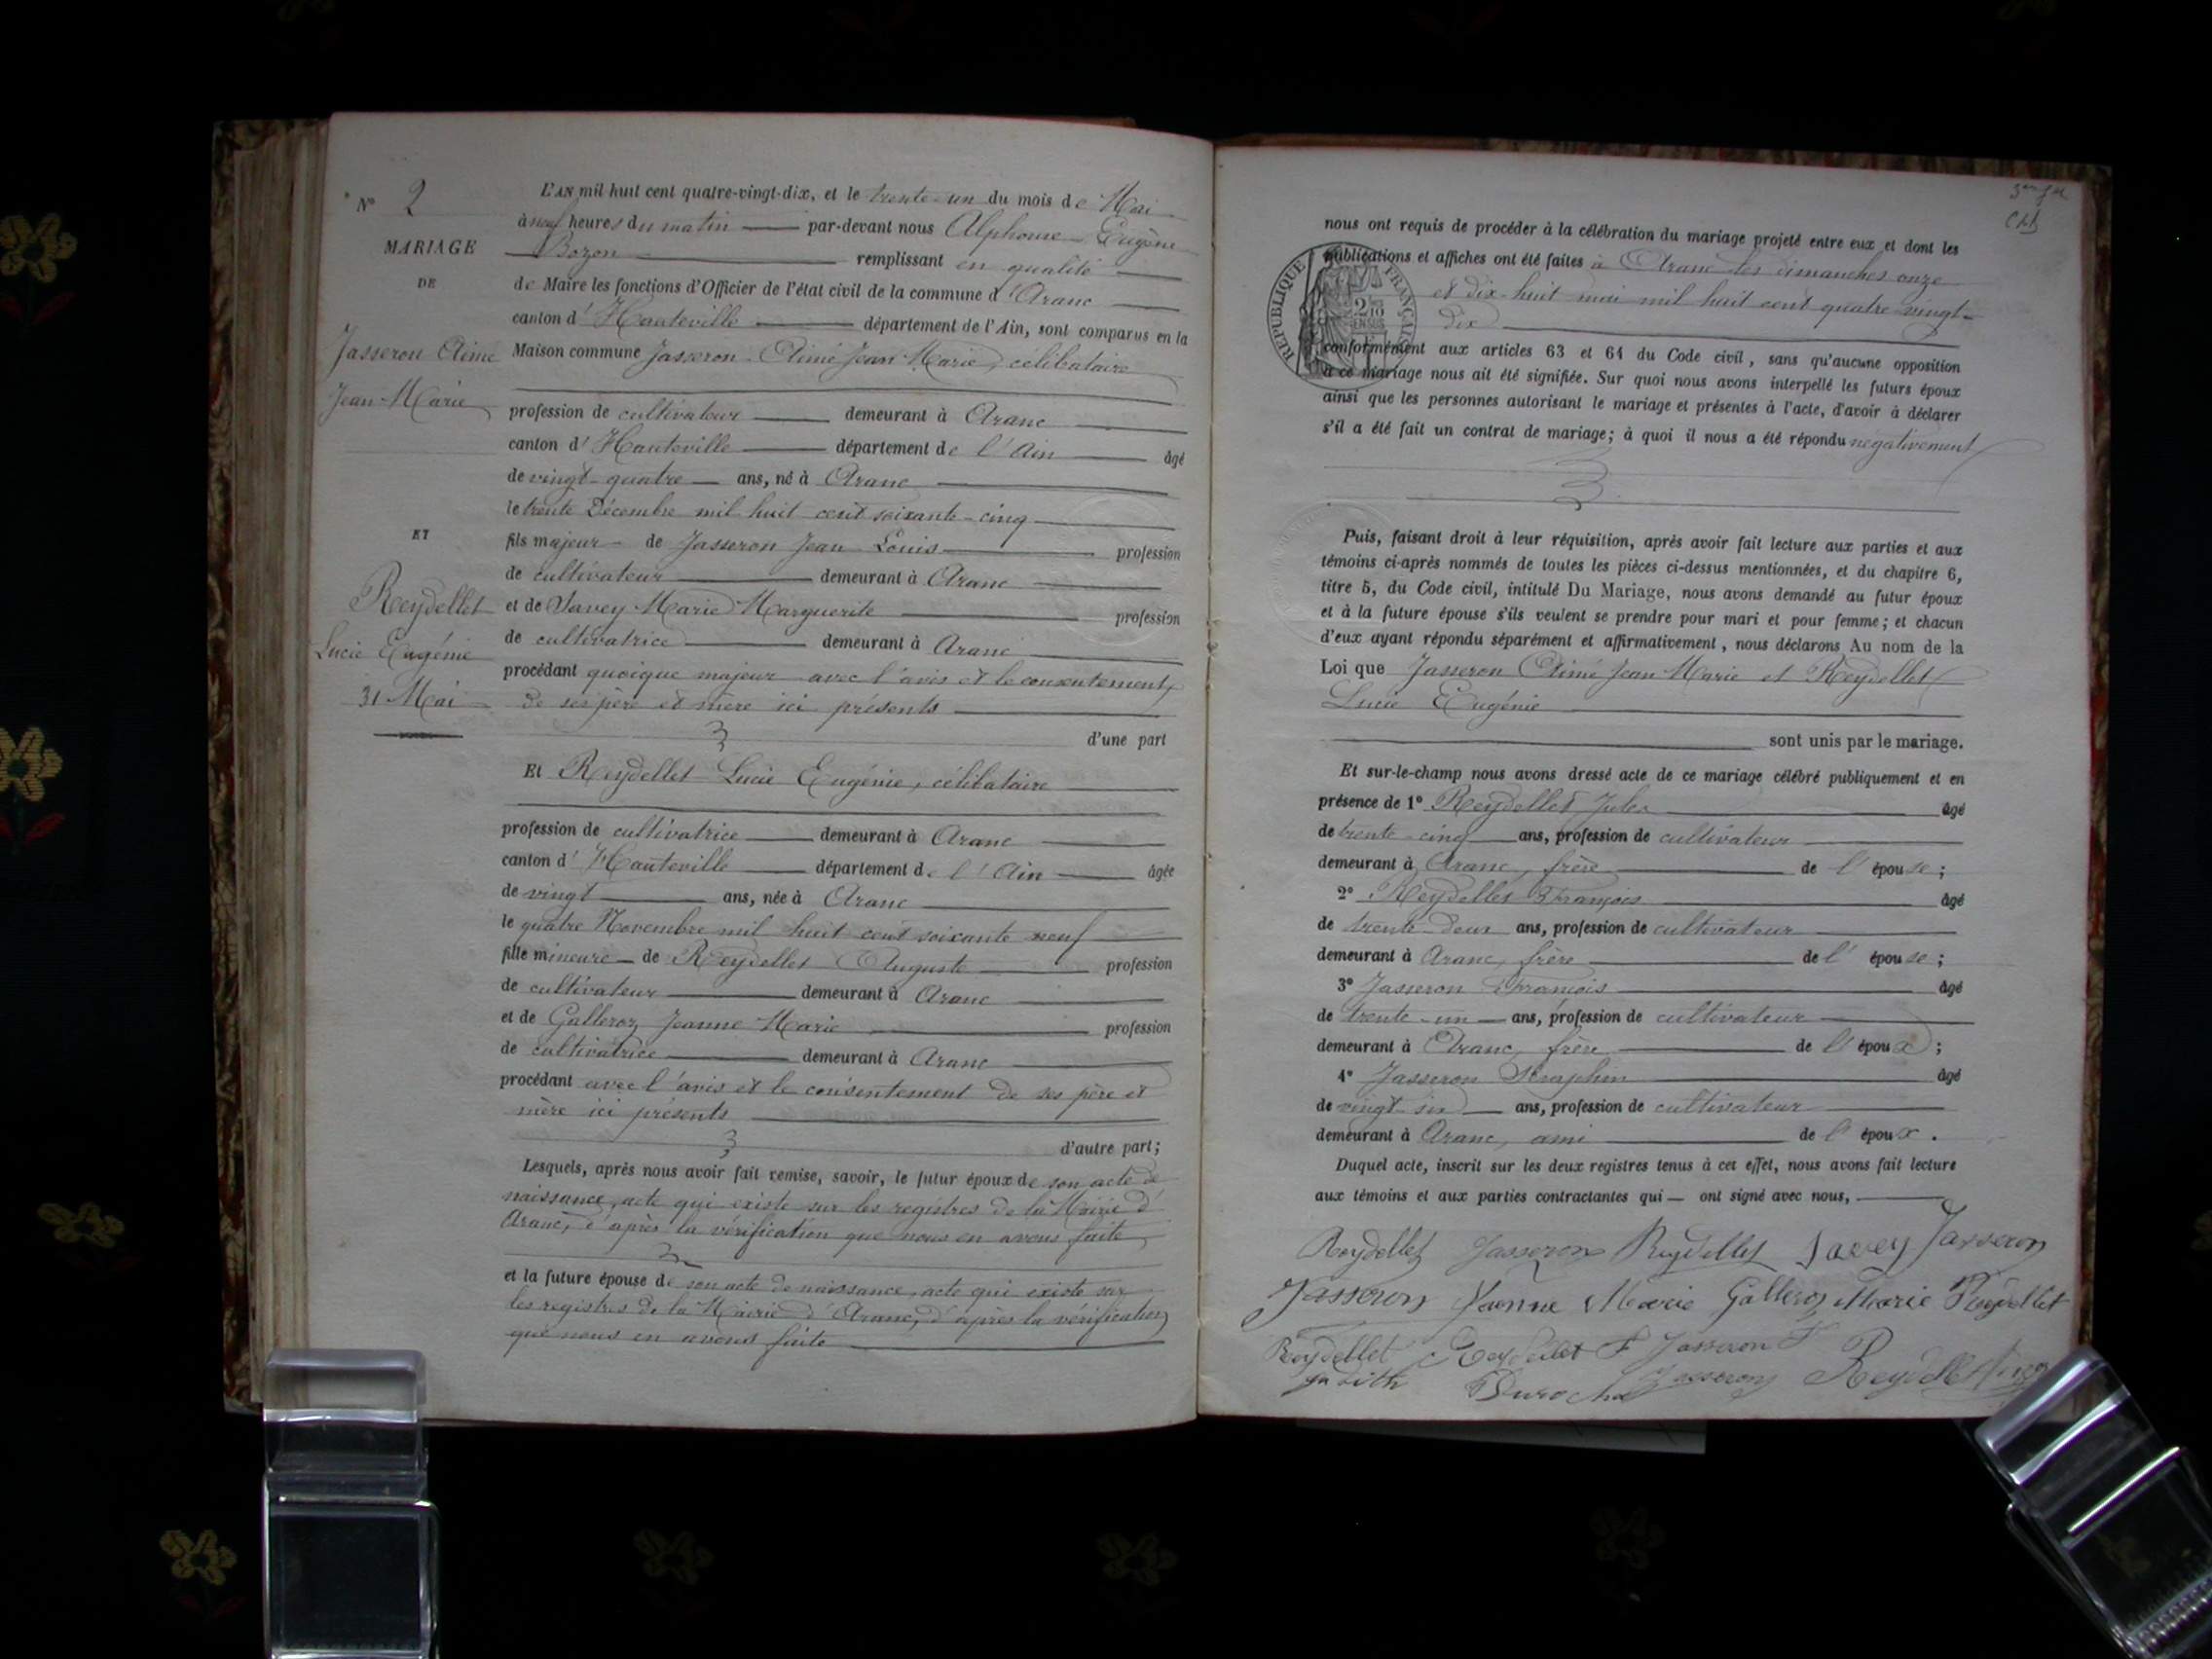 N° 2
MARIAGE
DE
Jasseron Aimé
Jean-Marie
ET
Reydellet
Lucie Eugénie
31 Mai
L'AN mil huit cent quatre-vingt-dix, et le trente-un du mois de Mai
à neuf heures du matin par-devant nous Alphonse Eugène
Bozon remplissant en qualité
de Maire les fonctions d'Officier de l'état civil de la commune d'Aranc
canton d'Hauteville département de l'Ain, sont comparus en la
Maison commune Jasseron Aimé Jean Marie, célibataire
profession de cultivateur demeurant à Aranc
canton d'Hauteville département de l'Ain âgé
de vingt-quatre ans, né à Aranc
le trente Décembre mil huit cent soixante-cinq
fils majeur de Jasseron Jean Louis profession
de cultivateur demeurant à Aranc
et de Savey Marie Marguerite profession
de cultivatrice demeurant à Aranc
procédant quoique majeur avec l'avis et le consentement
de ses père et mère ici présents
d'une part
Et Reydellet Lucie Eugénie, célibataire
profession de cultivatrice demeurant à Aranc
canton d'Hauteville département de l'Ain âgée
de vingt ans, née à Aranc
le quatre Novembre mil huit cent soixante neuf
fille mineure de Reydellet Auguste profession
de cultivateur demeurant à Aranc
et de Galleroz Jeanne Marie profession
de cultivatrice demeurant à Aranc
procédant avec l'avis et le consentement de ses père et
mère ici présents
d'autre part;
Lesquels, après nous avoir fait remise, savoir, le futur époux de son acte de
naissance, acte qui existe sur les registres de la Mairie d'
Aranc, d'après la vérification que nous en avons faite
et la future épouse de son acte de naissance, acte qui existe sur
les registres de la Mairie d'Aranc, d'après la vérification
que nous en avons faite
nous ont requis de procéder à la célébration du mariage projeté entre eux et dont les
publications et affiches ont été faites à Aranc les dimanches onze
et dix-huit mai mil huit cent quatre-vingt-
dix
RÉPUBLIQUE FRANÇAISE
conformément aux articles 63 et 64 du Code civil, sans qu'aucune opposition
à ce mariage nous ait été signifiée. Sur quoi nous avons interpellé les futurs époux
ainsi que les personnes autorisant le mariage et présentes à l'acte, d'avoir à déclarer
s'il a été fait un contrat de mariage; à quoi il nous a été répondu négativement
Puis, faisant droit à leur réquisition, après avoir fait lecture aux parties et aux
témoins ci-après nommés de toutes les pièces ci-dessus mentionnées, et du chapitre 6,
titre 5, du Code civil, intitulé Du Mariage, nous avons demandé au futur époux
et à la future épouse s'ils veulent se prendre pour mari et pour femme; et chacun
d'eux ayant répondu séparément et affirmativement, nous déclarons Au nom de la
Loi que Jasseron Aimé Jean Marie et Reydellet
Lucie Eugénie
sont unis par le mariage.
Et sur-le-champ nous avons dressé acte de ce mariage célébré publiquement et en
présence de 1° Reydellet Jules âgé
de trente-cinq ans, profession de cultivateur
demeurant à Aranc, frère de l'épouse;
2° Reydellet François âgé
de trente-deux ans, profession de cultivateur
demeurant à Aranc, frère de l'épouse;
3° Jasseron François âgé
de trente-un ans, profession de cultivateur
demeurant à Aranc, frère de l'époux;
4° Jasseron Séraphin âgé
de vingt six ans, profession de cultivateur
demeurant à Aranc, ami de l'époux.
Duquel acte, inscrit sur les deux registres tenus à cet effet, nous avons fait lecture
aux témoins et aux parties contractantes qui ont signé avec nous,
Reydellet Jasseron Reydellet Savey Jasseron
Jasseron Jeanne Marie Galleroz Marie Reydellet
Reydellet Reydellet F Jasseron F
Jasseron Reydellet